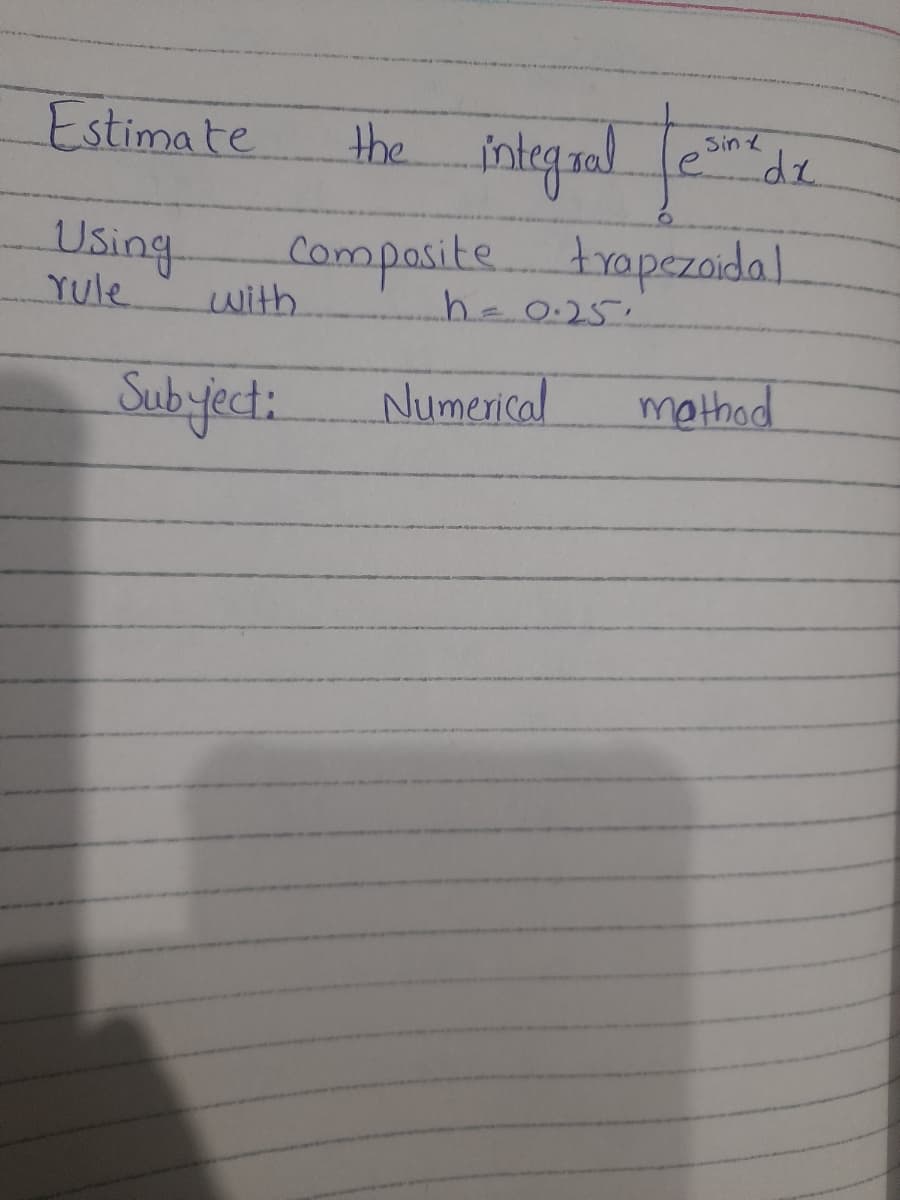 Estimate the integral ∫₀¹ e^sinx dx
Using composite trapezoidal
rule with h = 0.25.
Subject: Numerical mathod